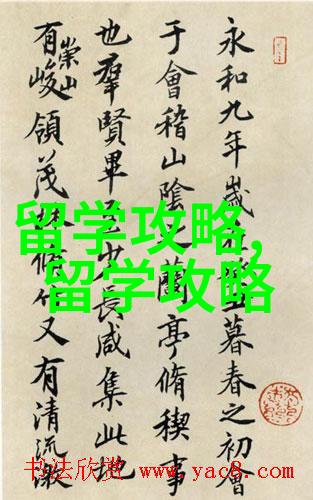 永和九年歲暮春之初會
于會稽山陰之蘭亭脩稧事
也羣賢畢至少長咸集此地
有崇山峻領茂林脩竹又有清流激
留学攻略,
留学攻略
书法欣赏 www.yac8.com